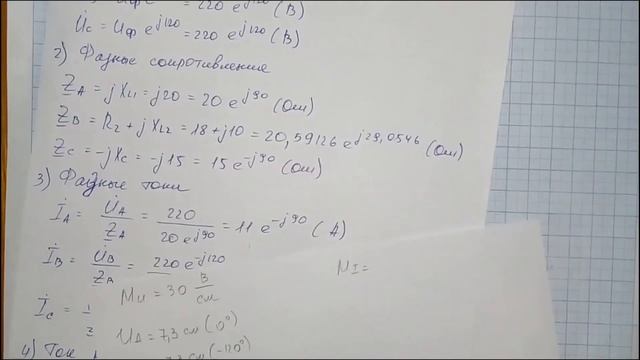 = 220 e^j120 (В)
U̇c = Uф e^j120 = 220 e^j120 (В)
2) Фазные сопротивления
Z_A = jX_L1 = j20 = 20 e^j90 (Ом)
Z_B = R_2 + jX_L2 = 18 + j10 = 20,59126 e^j29,0546 (Ом)
Z_C = -jX_C = -j15 = 15 e^-j90 (Ом)
3) Фазные токи
İ_A = U̇_A / Z_A = 220 / 20 e^j90 = 11 e^-j90 (А)
İ_B = U̇_B / Z_B = 220 e^-j120
M_I =
M_U = 30 В/см
İ_C =
U_A = 7,3 см (0°)
4) Ток
(-120°)